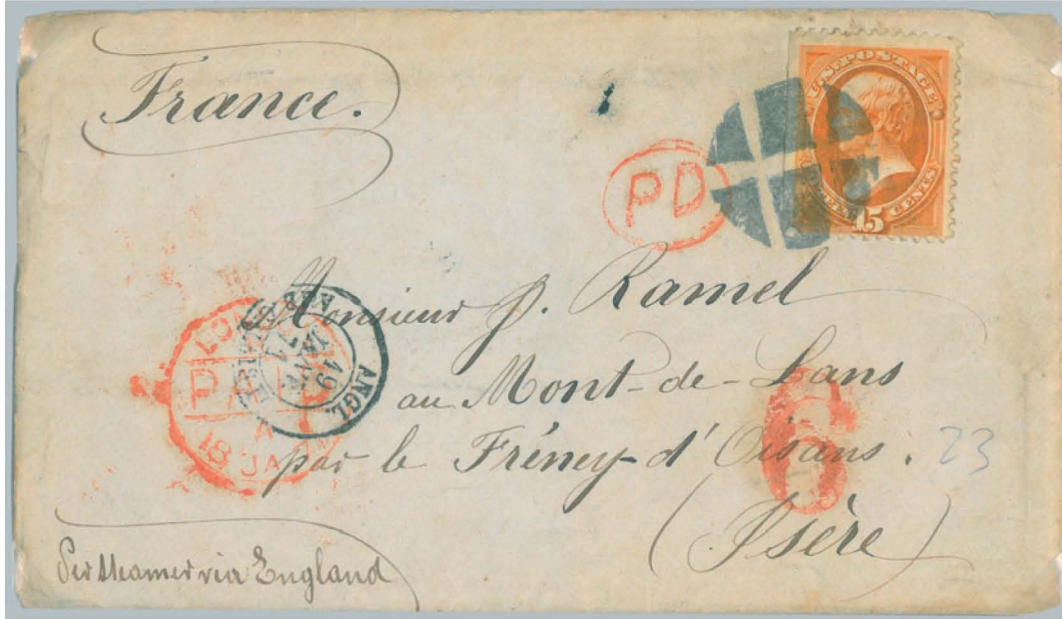 France.
U.S. POSTAGE
15
CENTS
PD
Monsieur J. Ramel
au Mont-de-Lans
par le Fréney-d'Oisans.
23
(Isère)
6
LON
PAI
A
18 JA
ANGL.
19
JANV
71
Per steamer via England